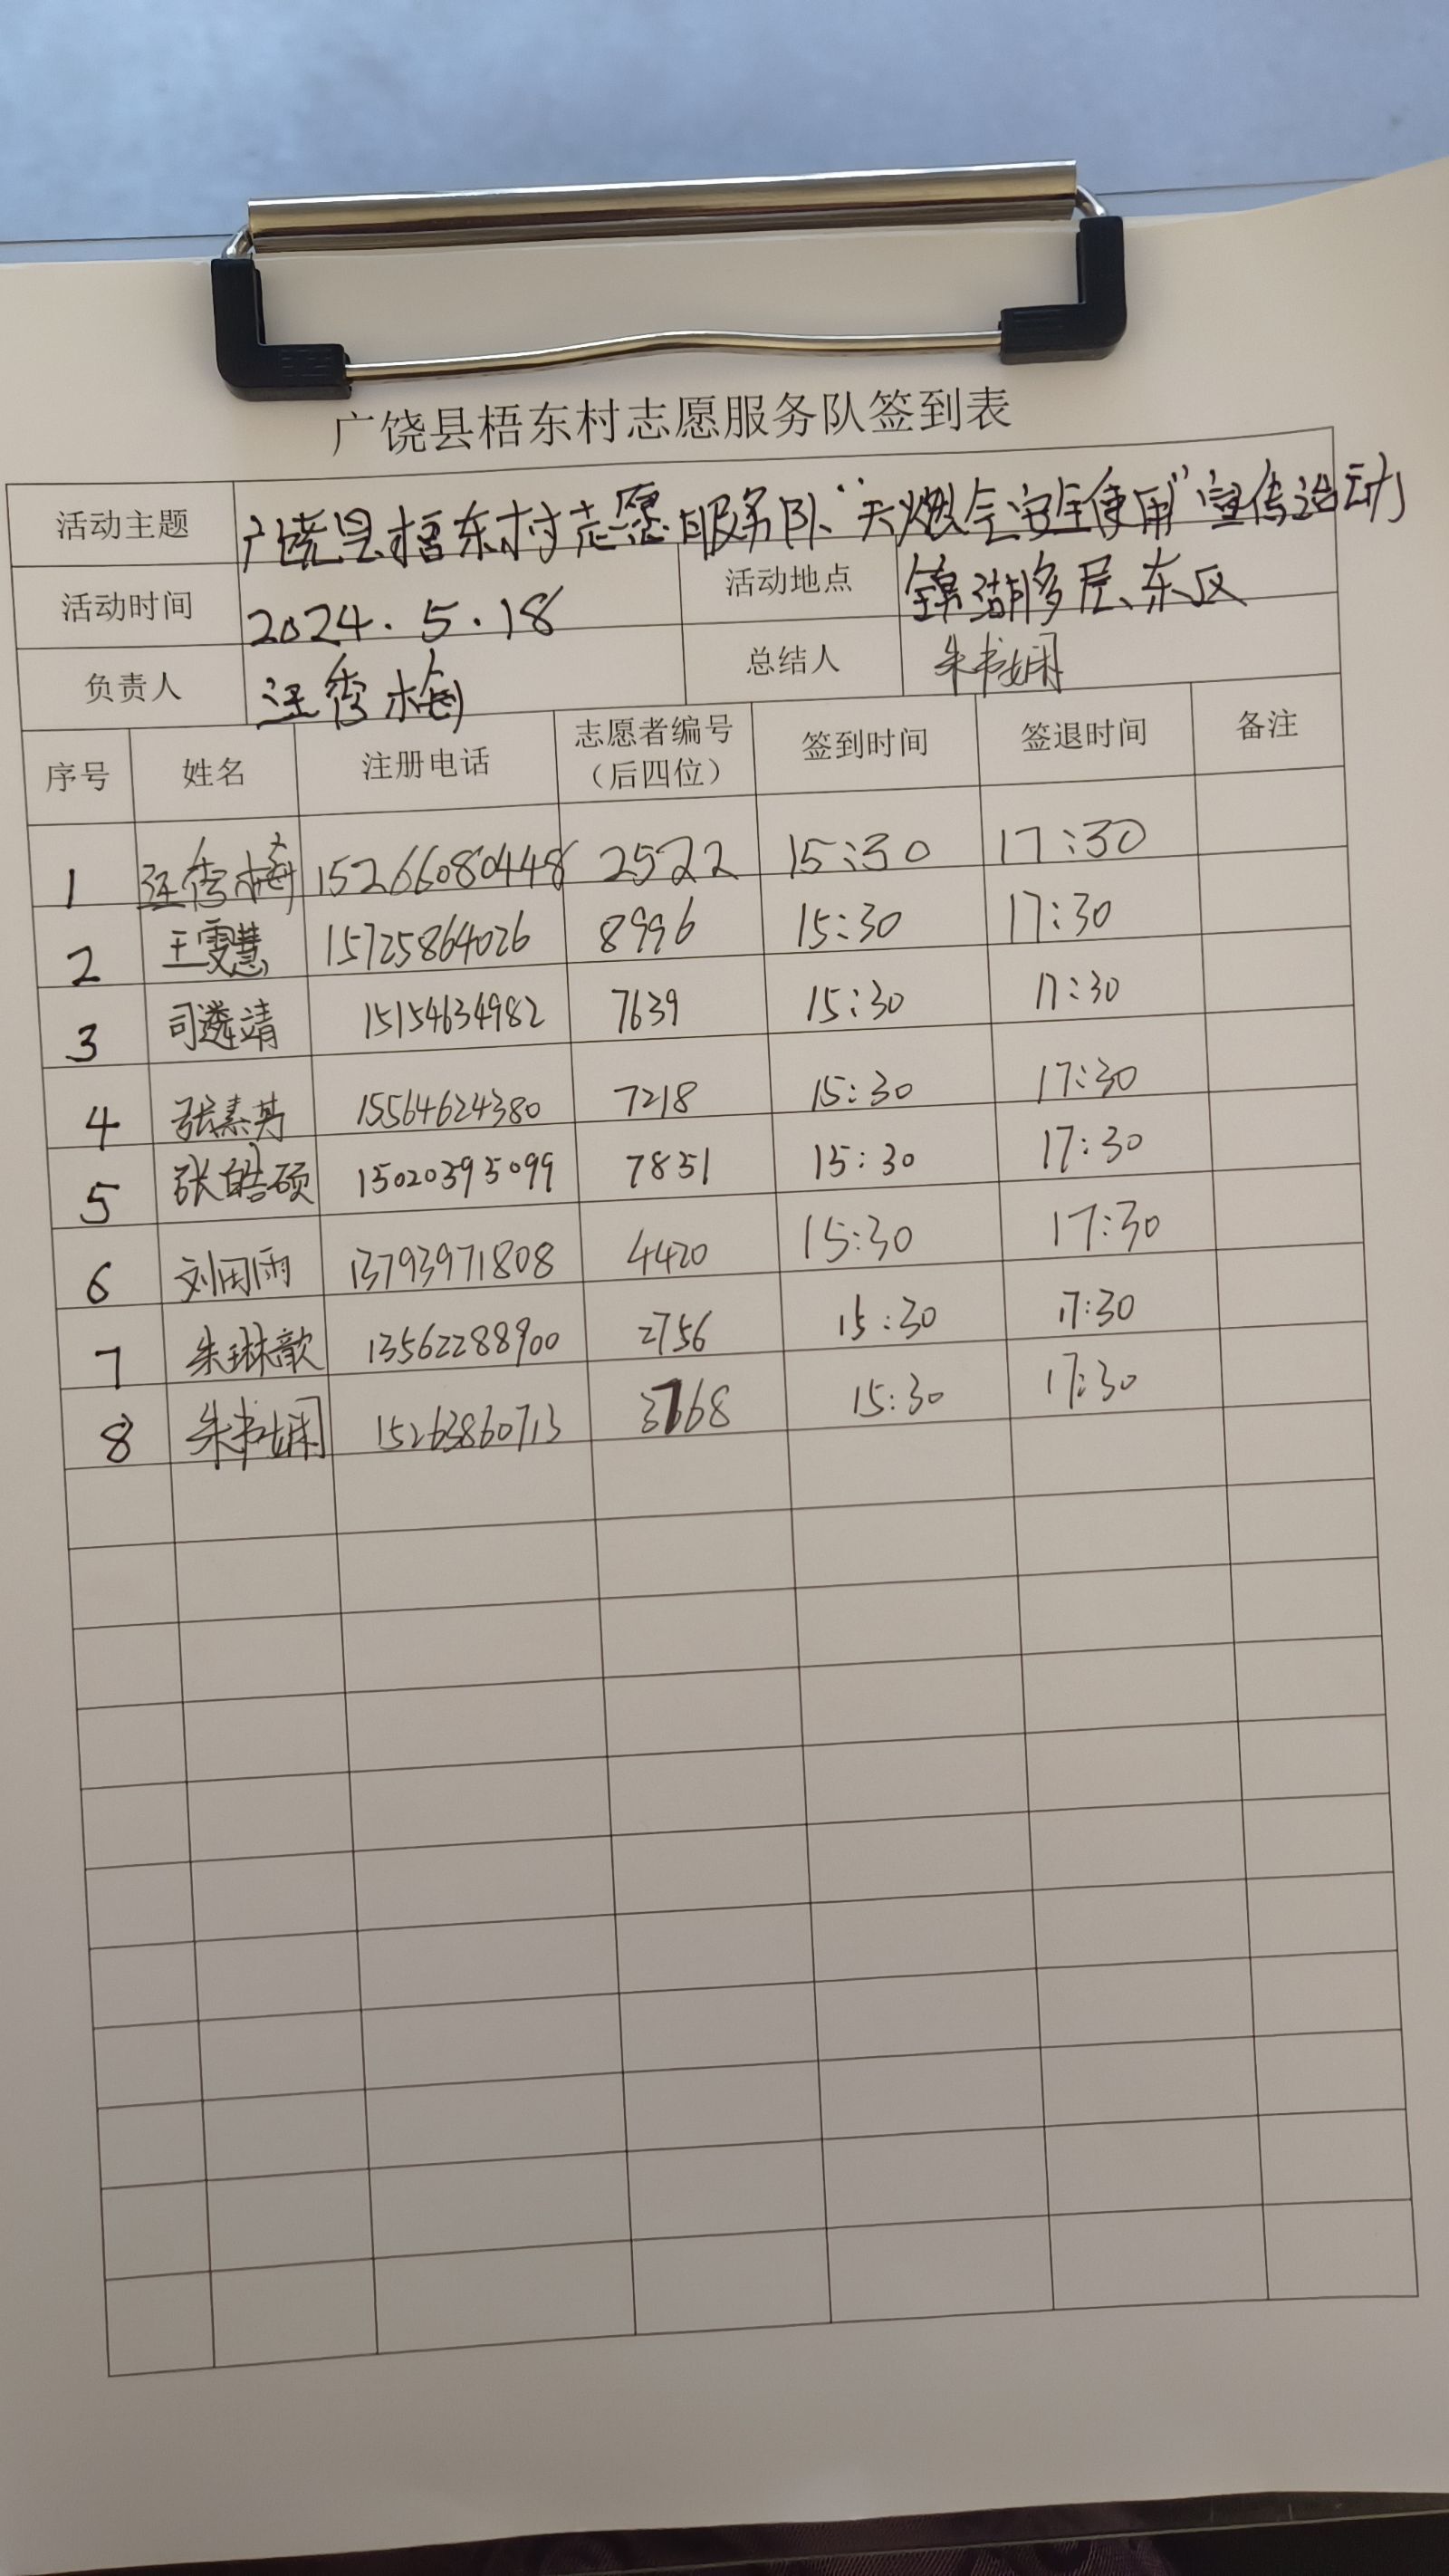 广饶县梧东村志愿服务队签到表
活动主题 广饶县梧东村志愿服务队“天燃气安全使用”宣传活动
活动时间 2024.5.18 活动地点 锦湖多层、东区
负责人 汪秀梅 总结人 朱书娴
序号 姓名 注册电话 志愿者编号（后四位） 签到时间 签退时间 备注
1 汪秀梅 15266080448 2522 15:30 17:30
2 王雯慧 15725864026 8996 15:30 17:30
3 司遴靖 15154634982 7639 15:30 17:30
4 张素英 15564624380 7218 15:30 17:30
5 张皓硕 15020395099 7851 15:30 17:30
6 刘雨 13793971808 4420 15:30 17:30
7 朱琳歆 13562288900 2756 15:30 17:30
8 朱书娴 15263860713 3768 15:30 17:30